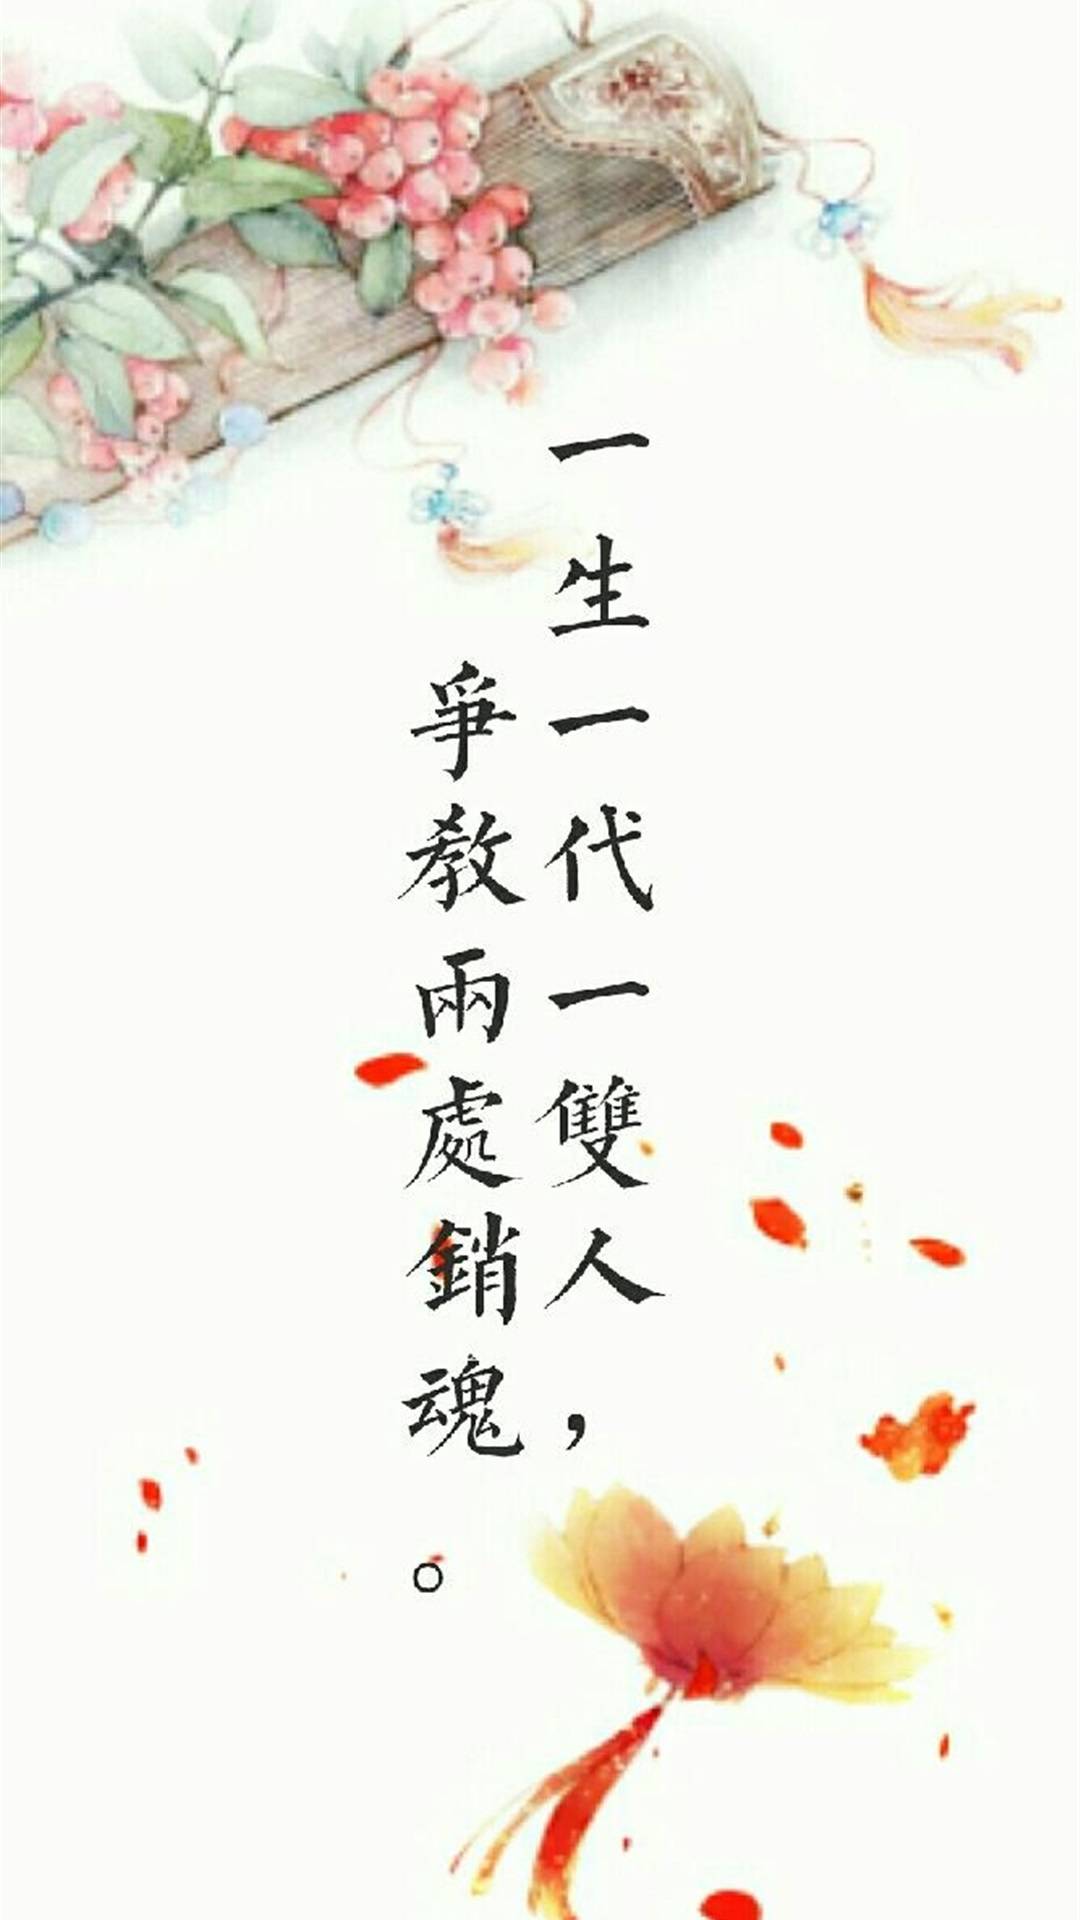 一生一代一雙人，
爭教兩處銷魂。